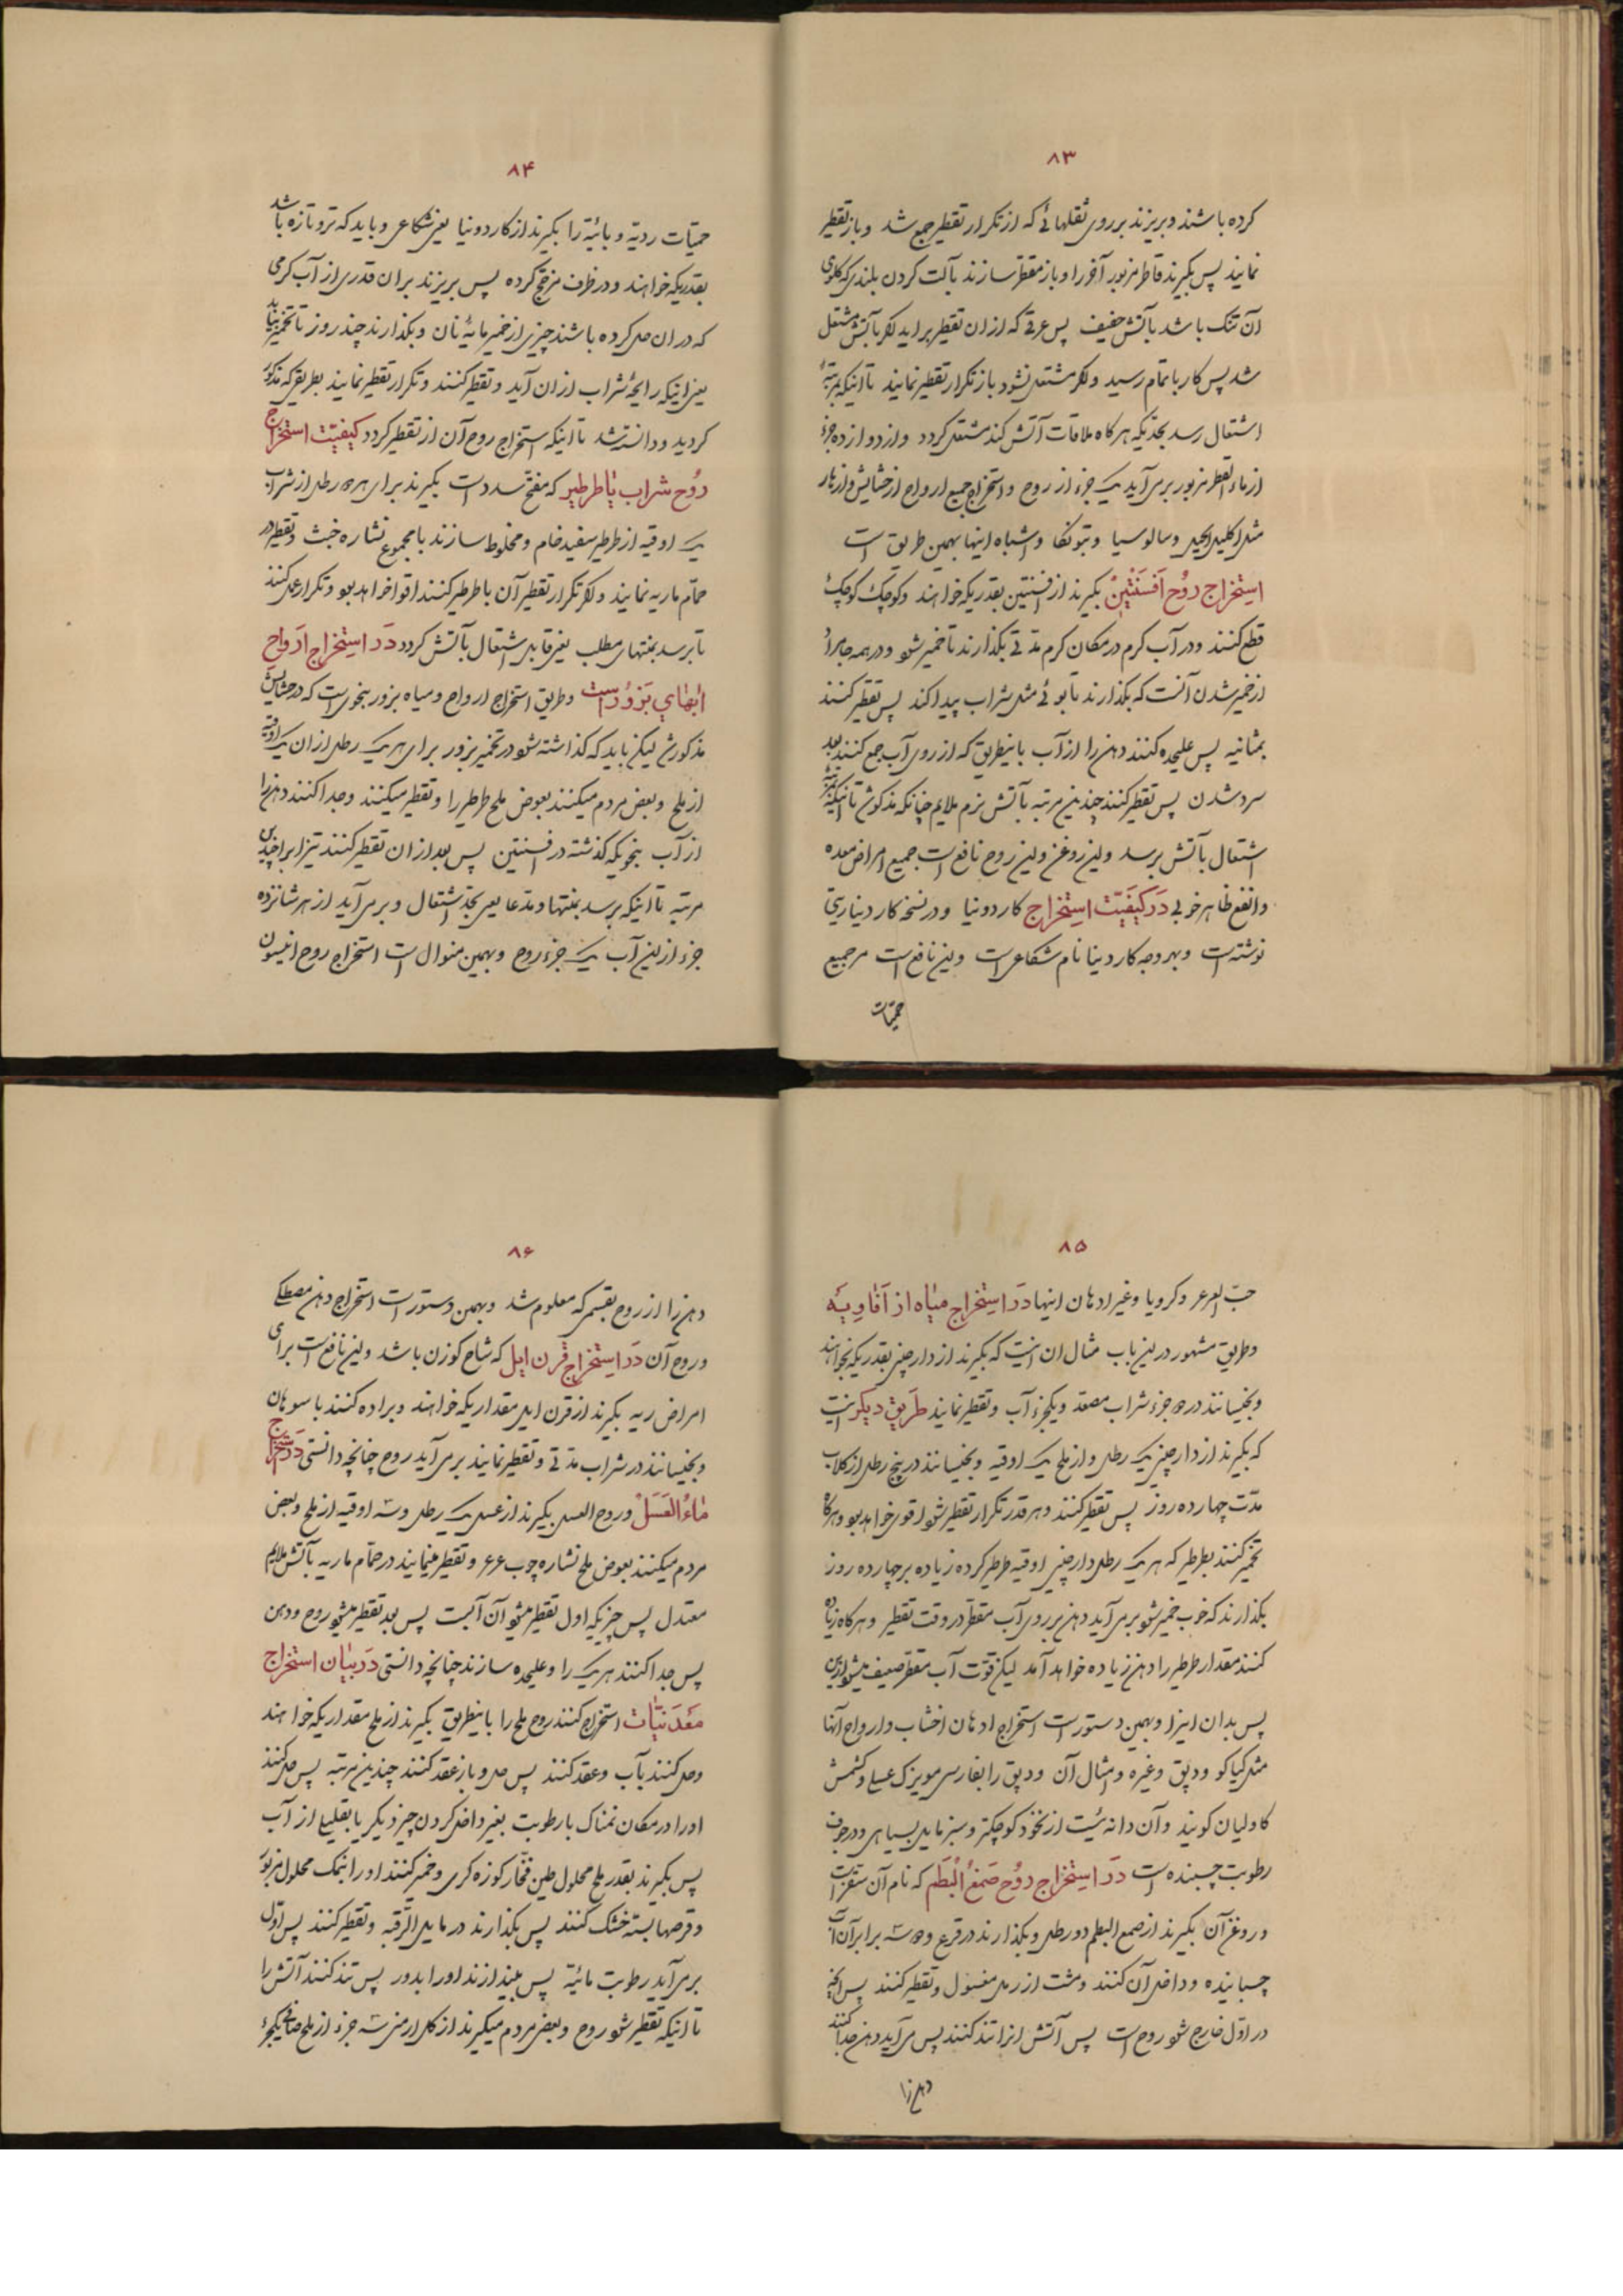 ۸۳
کرده باشند و بریزند بر روی ثقلهائی که از تکرار تقطیر جمع شد و باز تقطیر
نمایند پس بگیرند قاطر مزبور آخر را و باز مقطر سازند بآلت کردن بلندی که گلوی
آن تنگ باشد بآتش خفیف پس عرقی که از ان تقطیر براید اکر بآتش مشتعل
شد پس کار باتمام رسید و اکر مشتعل نشود باز تکرار تقطیر نمایند تا اینکه بمرتبهٔ
اشتعال رسد بحدیکه هرکاه ملاقات آتش کند مشتعل کردد و از دوازده جزء
از ماء القطر مزبور برمی‌آید یک جزء از روح و استخراج جمیع ارواح از حشایش و ازهار
مثل اکلیل الجبل و سالوسیا و بتونکا و اشباه اینها بهمین طریق است
استخراج روح افسنتین بگیرند از افسنتین بقدریکه خواهند و کوچک کوچک
قطع کنند و در آب کرم در مکان کرم مدتی بکذارند تا خمیر شود و در همه جا مراد
از خمیر شدن آنست که بکذارند تا بوئی مثل شراب پیدا کند پس تقطیر کنند
بمثانیه پس علیحده کنند دهن را از آب باینطریق که از روی آب جمع کنند بعد
سرد شدن پس تقطیر کنند چندین مرتبه بآتش نرم ملایم چنانکه مذکور شد تا اینکه بمرتبهٔ
اشتعال بآتش برسد و این روغن و این روح نافع است جمیع امراض معده
و انفع ظاهر خوبی در کیفیت استخراج کاردونیا و در نسخه کاردیناریتی
نوشته است و بهر وجه کاردینا نام شکاعی است و این نافع است مر جمیع
حمیّات
۸۴
حمیّات ردیّه و بائیّه را بگیرند از کاردونیا یعنی شکاعی و باید که تر و تازه باشد
بقدریکه خواهند و در ظرف مزجّج کرده پس بریزند بران قدری از آب کرمی
که در ان حل کرده باشند چیزی از خمیر مایهٔ نان و بکذارند چند روز تا تخمیر بیابد
یعنی اینکه رایحهٔ شراب از ان آید و تقطیر کنند و تکرار تقطیر نمایند بطریقی که مذکور
کردید و دانسته شد تا اینکه استخراج روح آن از تقطیر کردد کیفیّت استخراج
روح شراب با طرطیر که مفتّح سدد است بگیرند برای هر رطل از شراب
یک اوقیه از طرطیر سفید خام و مخلوط سازند با مجموع نشاره خبث و تقطیر در
حمّام ماریه نمایند و اکر تکرار تقطیر آن با طرطیر کنند اقوا خواهد بود و تکرار عمل کنند
تا برسد بمنتهای مطلب یعنی قابل اشتعال بآتش کردد در استخراج ارواح
ابهای بزور است و طریق استخراج ارواح و میاه بزور بنحوی است که در حشایش
مذکور شد لیکن باید که کذاشته شود در تخمیر بزور برای هر یک رطل از ان یک اوقیه
از ملح و بعضی مردم میکنند بعوض ملح طرطیر را و تقطیر میکنند و جدا کنند دهن را
از آب بنحویکه کذشته در افسنتین پس بعد از ان تقطیر کنند تیزاب را چندین
مرتبه تا اینکه برسد بمنتها و مدعا یعنی بحدّ اشتعال و برمی‌آید از هر شانزده
جزء از این آب یک جزء روح و بهمین منوال است استخراج روح انیسون
۸۵
حبّ العرعر و کرویا و غیر ادهان اینها در استخراج میاه از افاویه
و طریق مشهور در این باب مثال ان اینست که بگیرند از دارچینی بقدریکه بخواهند
و بخیسانند در جزء شراب مصعد و یکجزء آب و تقطیر نمایند طریق دیکر اینست
که بگیرند از دارچینی یک رطل و از ملح یک اوقیه و بخیسانند در پنج رطل از کلاب
مدّت چهارده روز پس تقطیر کنند و هر قدر تکرار تقطیر شود اقوی خواهد بود و هرکاه
تخمیر کنند بطرطیر که هر یک رطل دارچینی اوقیه طرطیر کرده زیاده بر چهارده روز
بکذارند که خوب خمیر شود برمی‌آید دهن بر روی آب مقطّر در وقت تقطیر و هرکاه زیاده
کنند مقدار طرطیر را دهن زیاده خواهد آمد لیکن قوّت آب مقطر ضعیف میشود ازین
پس بدان اینرا و بهمین دستور است استخراج ادهان اخشاب و ارواح آنها
مثل کیاکو و دبق و غیره و امثال آن و دبق را بفارسی مویزک عسلی و کشمش
کاولیان کویند و آن دانه ئیست از نخود کوچکتر و سبز مایل بسیاهی و در جوف
رطوبت چسبنده است در استخراج روح صمغ البطم که نام آن سقز است
و روغن آن بگیرند از صمغ البطم دو رطل و بکذارند در قرع و سه برابر آن آب
چسبانیده و داخل آن کنند و مشت از رمل مغسول و تقطیر کنند پس آنچه
در اوّل خارج شود روح است پس آتش انرا تند کنند پس می‌آید دهن جدا کنند
دهن را
۸۶
دهن را از روح بقسمی که معلوم شد و بهمین دستور است استخراج دهن مصطکی
و روح آن در استخراج قرن ایل که شاخ کوزن باشد و این نافع است برای
امراض ریه بگیرند از قرن ایل مقداریکه خواهند و براده کنند با سوهان
و بخیسانند در شراب مدتی و تقطیر نمایند برمی‌آید روح چنانچه دانستی در استخراج
ماء العسل و روح العسل بگیرند از عسل یک رطل و سه اوقیه از ملح و بعضی
مردم میکنند بعوض ملح نشاره چوب عرعر و تقطیر مینمایند در حمّام ماریه بآتش ملایم
معتدل پس چیزیکه اول تقطیر میشود آن آبست پس بعد تقطیر میشود روح و دهن
پس جدا کنند هر یک را و علیحده سازند چنانچه دانستی در بیان استخراج
معدنیّات استخراج کنند روح ملح را باینطریق بگیرند از ملح مقداریکه خواهند
و حل کنند بآب و عقد کنند پس حل و باز عقد کنند چندین مرتبه پس حل کنند
اورا در مکان نمناک با رطوبت بغیر داخل کردن چیز دیکر یا بقلیلی از آب
پس بگیرند بقدر ملح محلول طین فخّار کوزه کری و خمیر کنند اورا بنمک محلول مزبور
و قرصها بسته خشک کنند پس بکذارند در مایل الرّقبه و تقطیر کنند پس اوّل
برمی‌آید رطوبت مائیّه پس بیندازند اورا بدور پس تند کنند آتش را
تا اینکه تقطیر شود روح و بعضی مردم میگیرند از کل ارمنی سه جزء از ملح صافی یکجزء